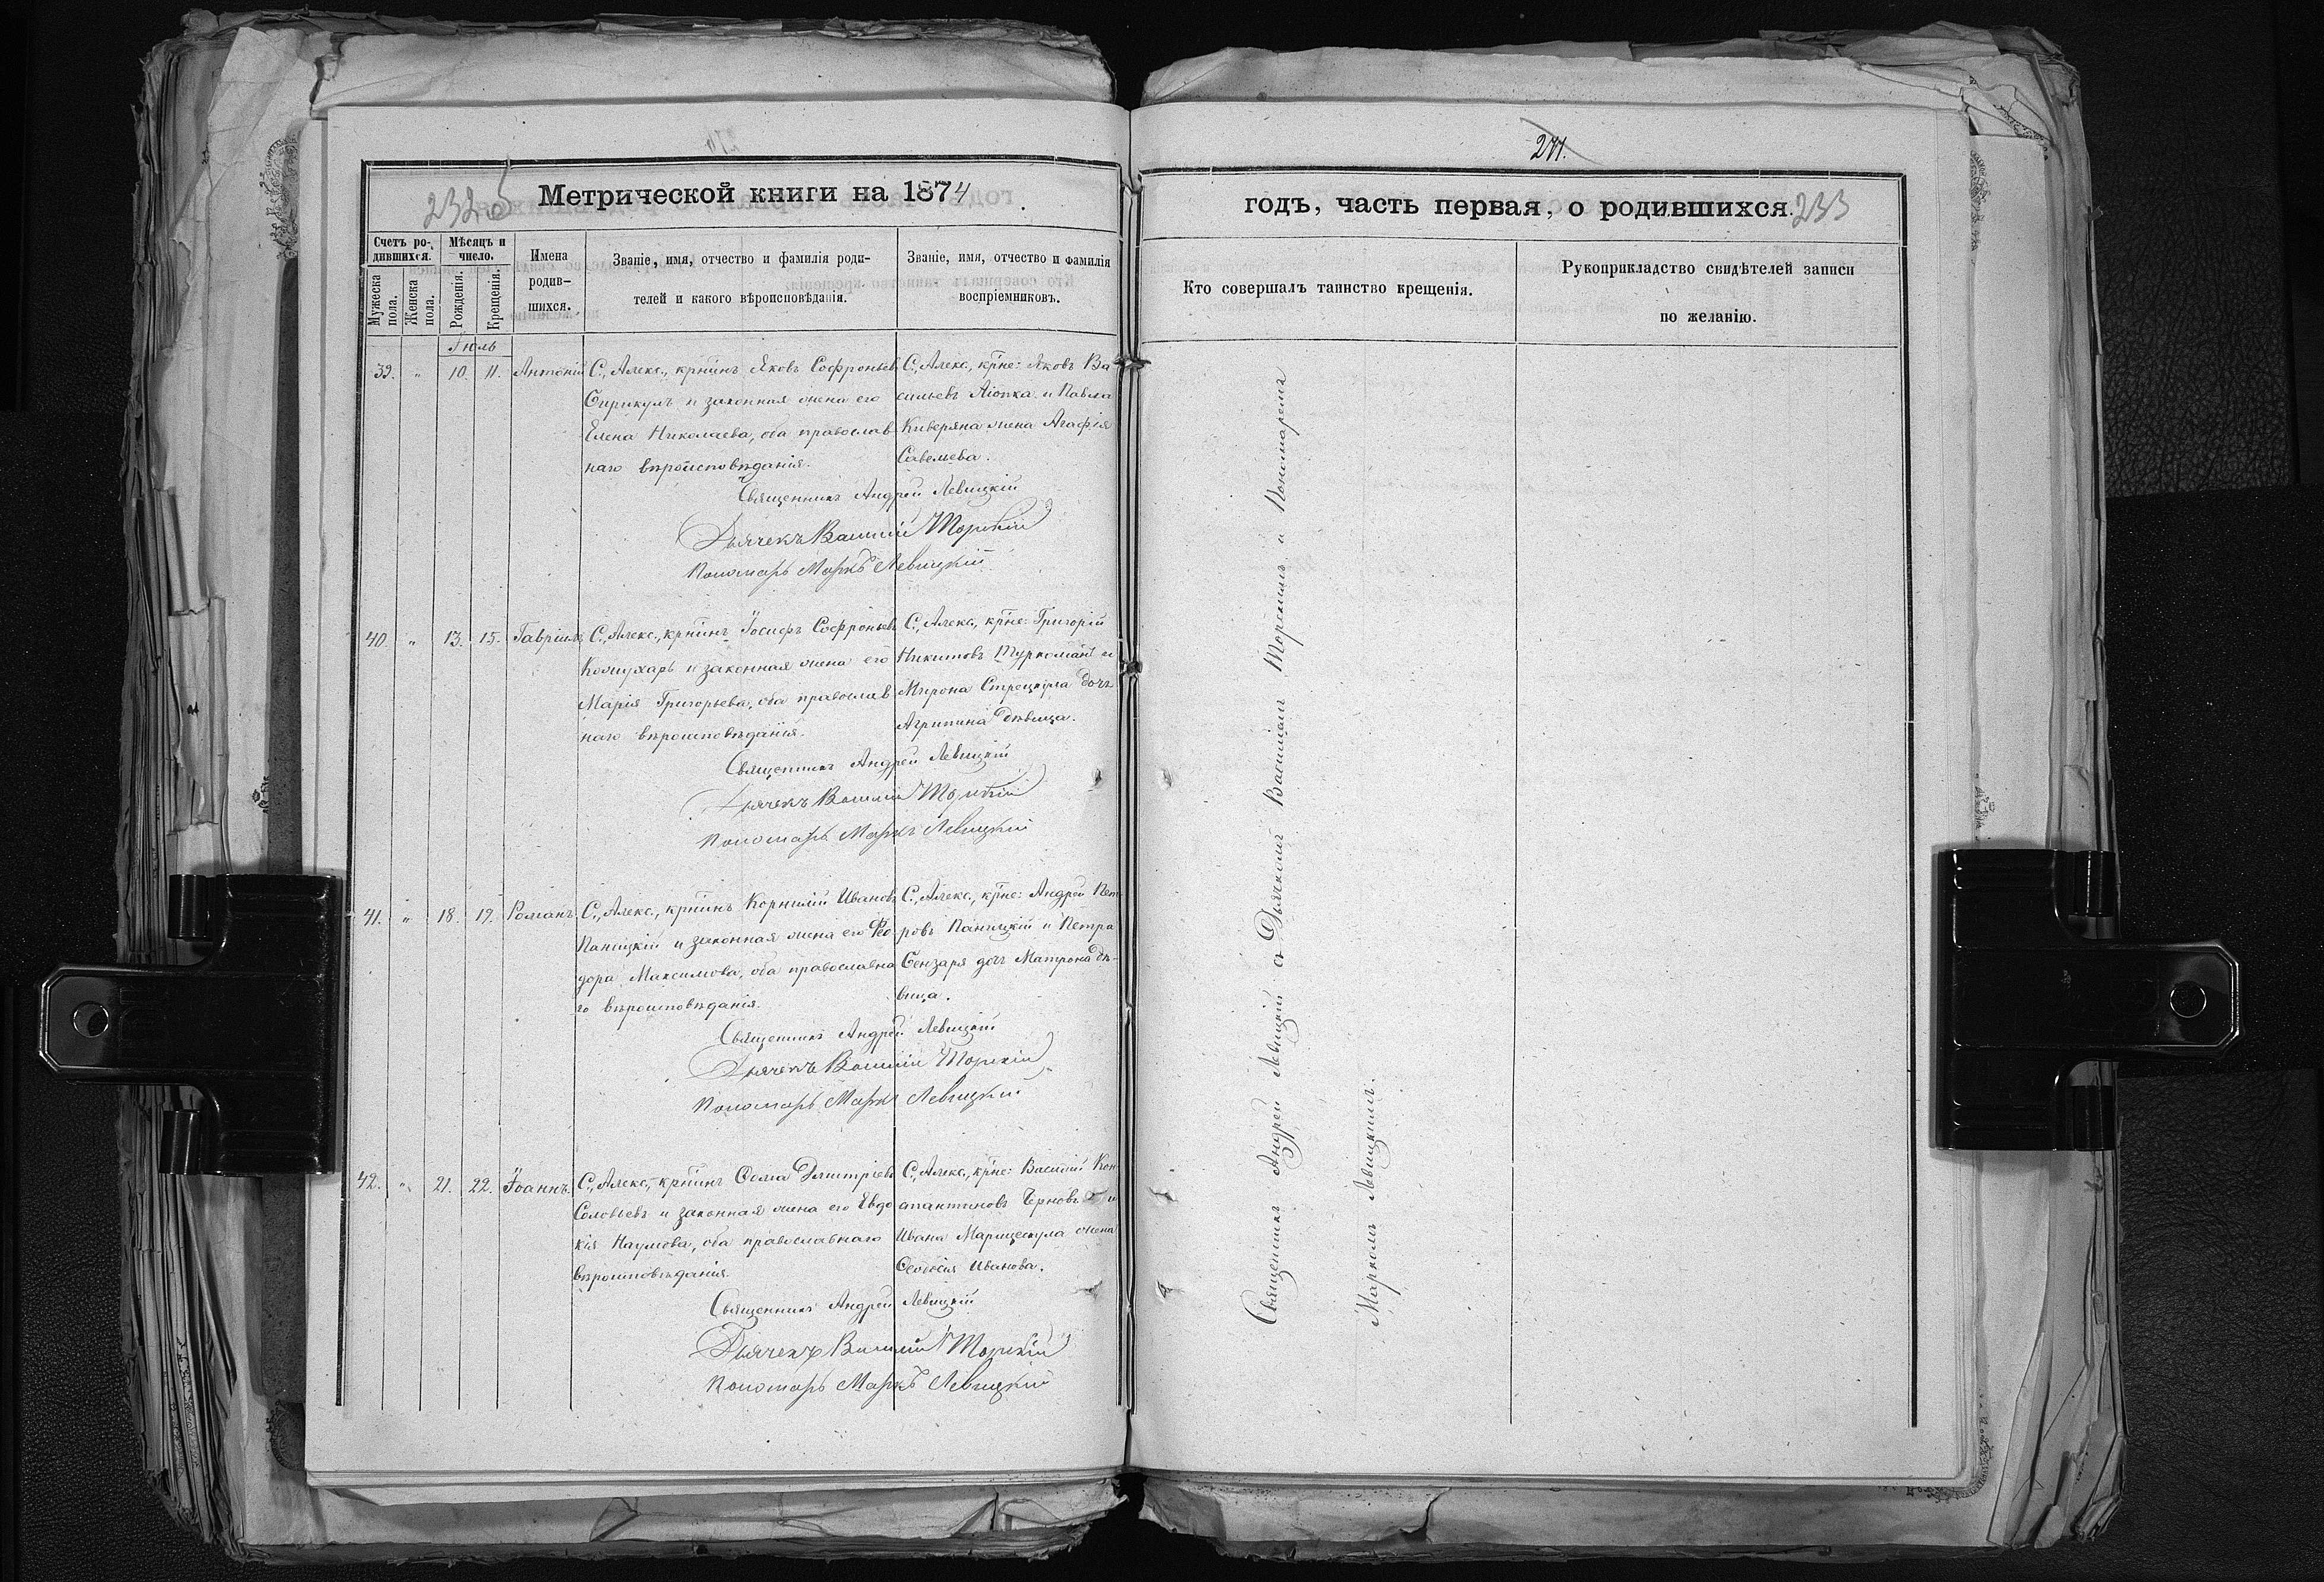 232об
Метрической книги на 1874
Счетъ ро-
дившихся.
Мѣсяцъ и
число.
Мужеска
пола.
Женска
пола.
Рожденія.
Крещенія.
Имена
родив-
шихся.
Званіе, имя, отчество и фамилія роди-
телей и какого вѣроисповѣданія.
Званіе, имя, отчество и фамилія
воспріемниковъ.
Іюль
39. " 10. 11. Антоній
С., Алекс., крнинъ Яковъ Софроньевъ
Сприкулъ и законная жена его
Елена Николаева, оба православ
наго вѣроисповѣданія.
С., Алекс., крне: Яковъ Ва
сильевъ и Павла
Киверяна жена Агафія
Савельева.
Священникъ Андрей Левицкій
Дьячекъ Василій Торскій
Пономарь Маркъ Левицкій
40. " 13. 15. Гавріилъ
С., Алекс., крнинъ Іосифъ Софроньевъ
Кошухарь и законная жена его
Марія Григорьева, оба православ
наго вѣроисповѣданія.
С., Алекс., крне: Григорій
Никитовъ Туркоманъ и
Мирона дочь
Агрипина дѣвица.
Священникъ Андрей Левицкій
Дьячекъ Василій Торскій
Пономарь Маркъ Левицкій
41. " 18. 19. Романъ
С., Алекс., крнинъ Корнилій Ивановъ
Паницкій и законная жена его Ѳео
дора Максимова, оба православна
го вѣроисповѣданія.
С., Алекс., крне: Андрей Пет
ровъ Паницкій и Петра
Сензаря дочь Матрона дѣ-
вица.
Священникъ Андрей Левицкій
Дьячекъ Василій Торскій
Пономарь Маркъ Левицкій
42. " 21. 22. Іоаннъ.
С., Алекс., крнинъ Ѳома Димитріевъ
Соловьевъ и законная жена его Евдо
кія Наумова, оба православнаго
вѣроисповѣданія.
С., Алекс., крне: Василій Кон
стантиновъ Черновъ и
Ивана Марицескула жена
Ѳеодосія Иванова.
Священникъ Андрей Левицкій
Дьячекъ Василій Торскій
Пономарь Маркъ Левицкій
271.
годъ, часть первая, о родившихся.
233
Кто совершалъ таинство крещенія.
Рукоприкладство свидѣтелей записи
по желанію.
Священникъ Андрей Левицкій съ Дьячкомъ Василіемъ Торскимъ и Пономаремъ
Маркомъ Левицкимъ.